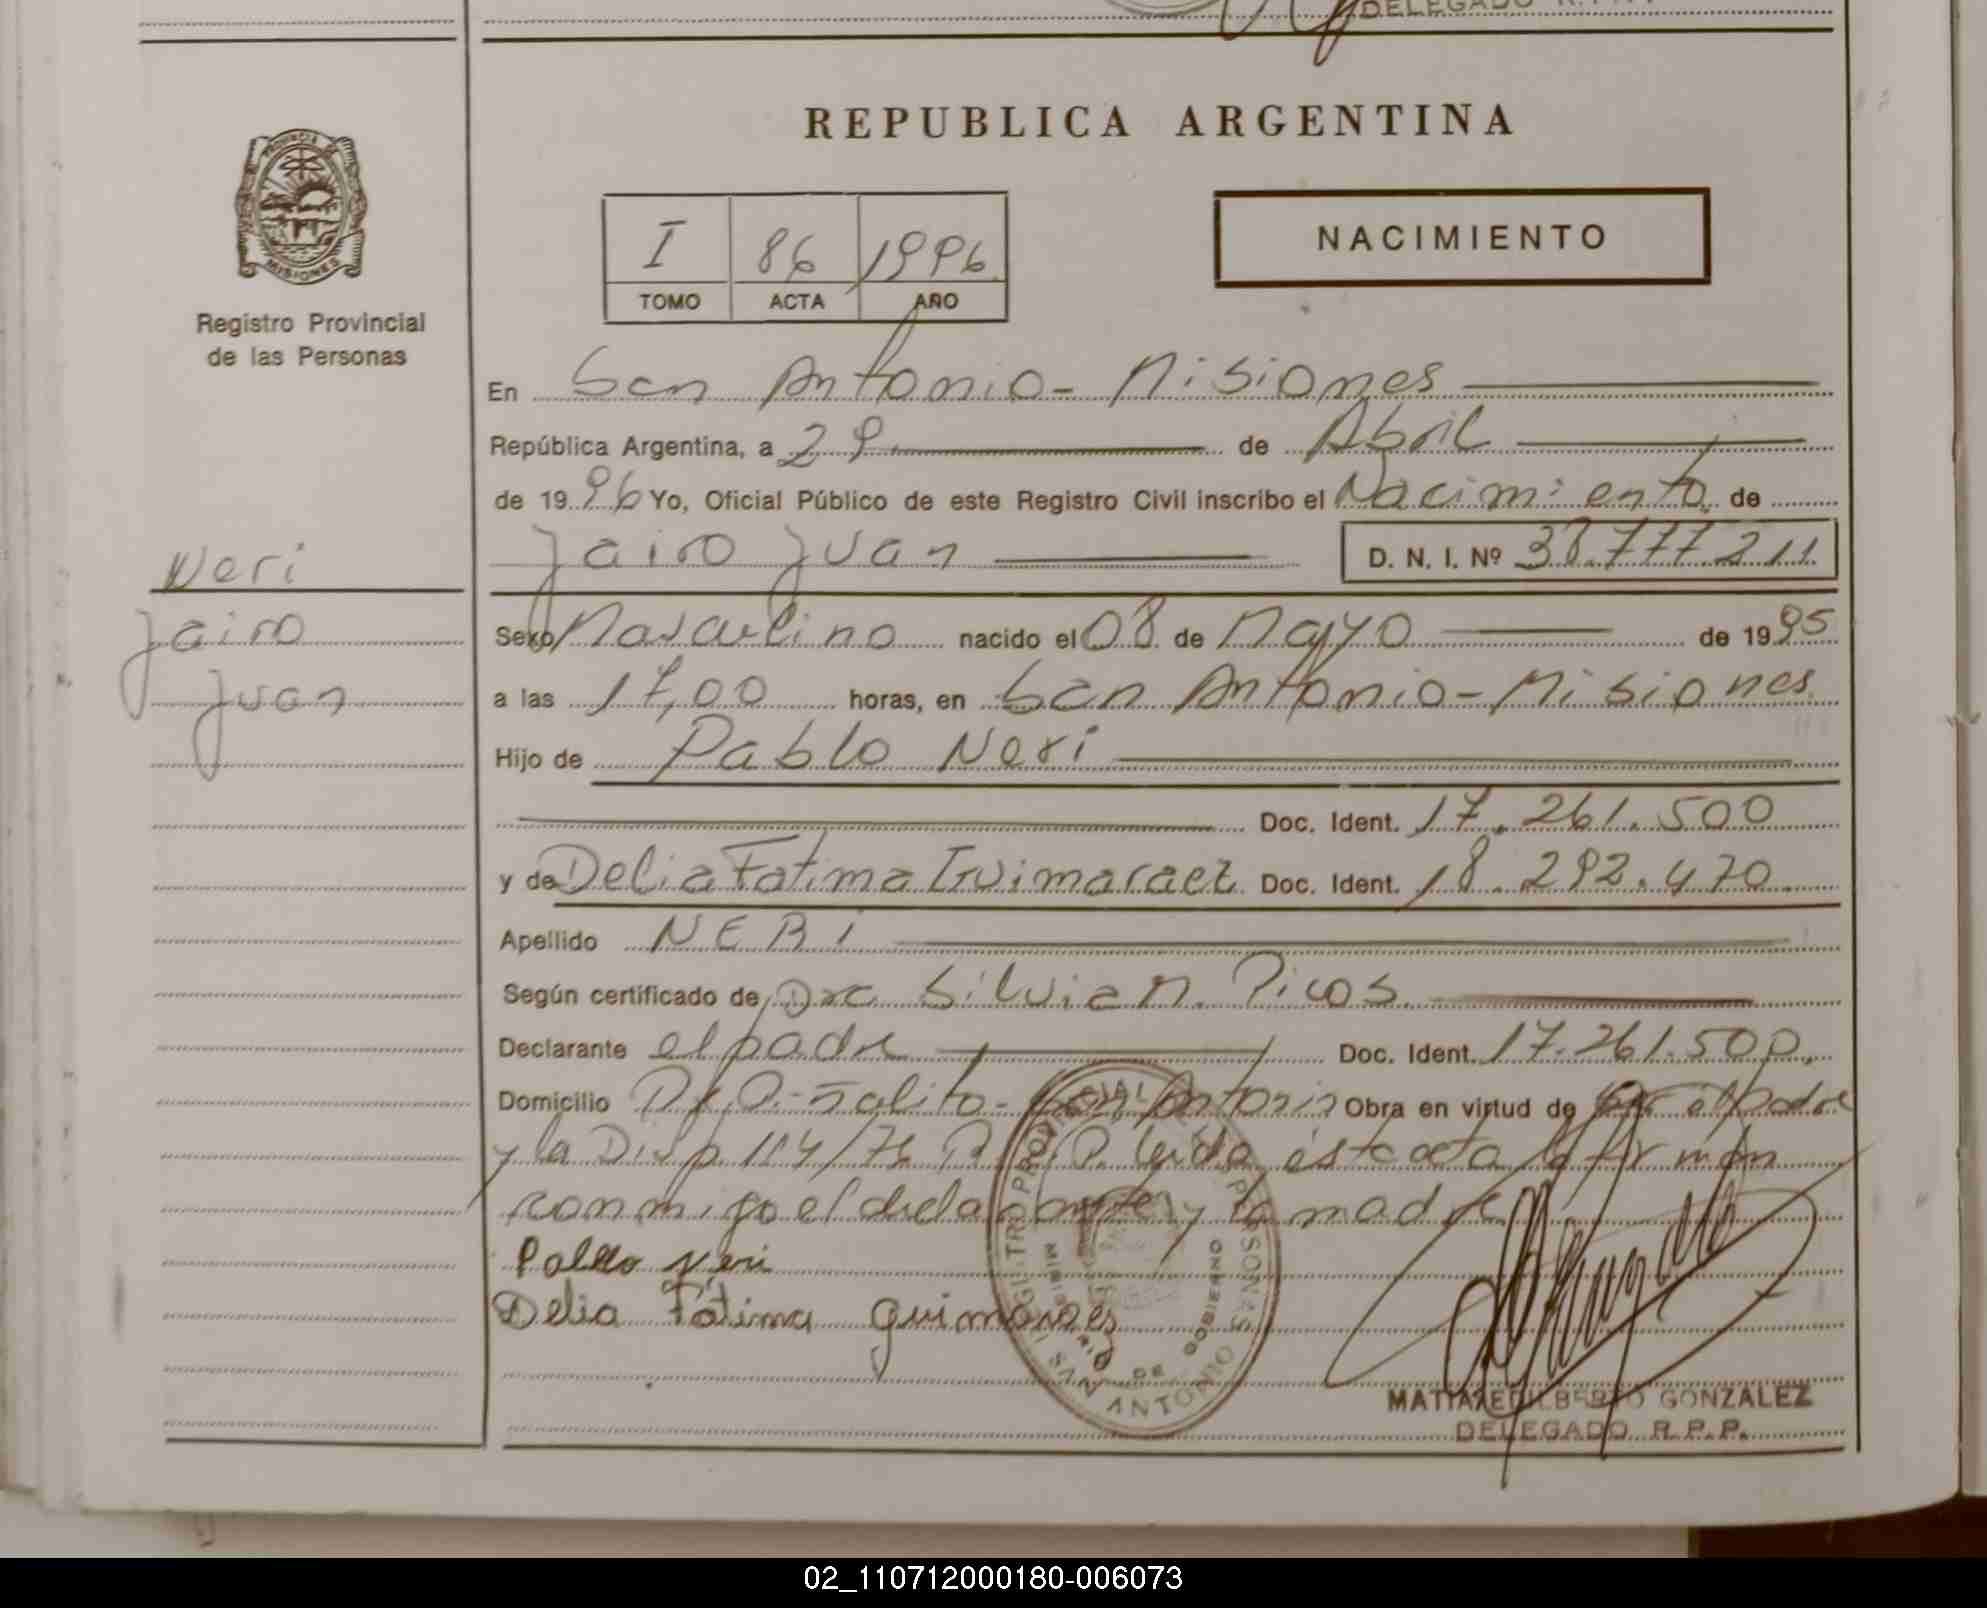 DELEGADO R.P.P.
REPUBLICA ARGENTINA
PROVINCIA DE
MISIONES
Registro Provincial
de las Personas
I 86 1996
TOMO ACTA AÑO
NACIMIENTO
En San Antonio - Misiones
República Argentina, a 29 de Abril
de 1996 Yo, Oficial Público de este Registro Civil inscribo el Nacimiento de
Jairo Juan D. N. I. Nº 38.777.211
Neri
Jairo
Juan
Sexo Masculino nacido el 08 de Mayo de 1995
a las 17,00 horas, en San Antonio - Misiones
Hijo de Pablo Neri
Doc. Ident. 17.261.500
y de Delia Fatima Guimaraez Doc. Ident. 18.292.470
Apellido NERI
Según certificado de Dra Silvia N. Picos
Declarante el padre Doc. Ident. 17.261.500
Domicilio Salito - San Antonio Obra en virtud de el padre
y la Disp 114/76 leida esta acta la firman
conmigo el declarante y la madre
Pablo Neri
Delia Fátima Guimaraes
SAN ANTONIO
DE GOBIERNO
MATIAS EDILBERTO GONZALEZ
DELEGADO R.P.P.
02_110712000180-006073